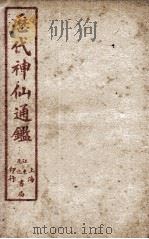 歷代神仙通鑑
上海
江東書局
印行